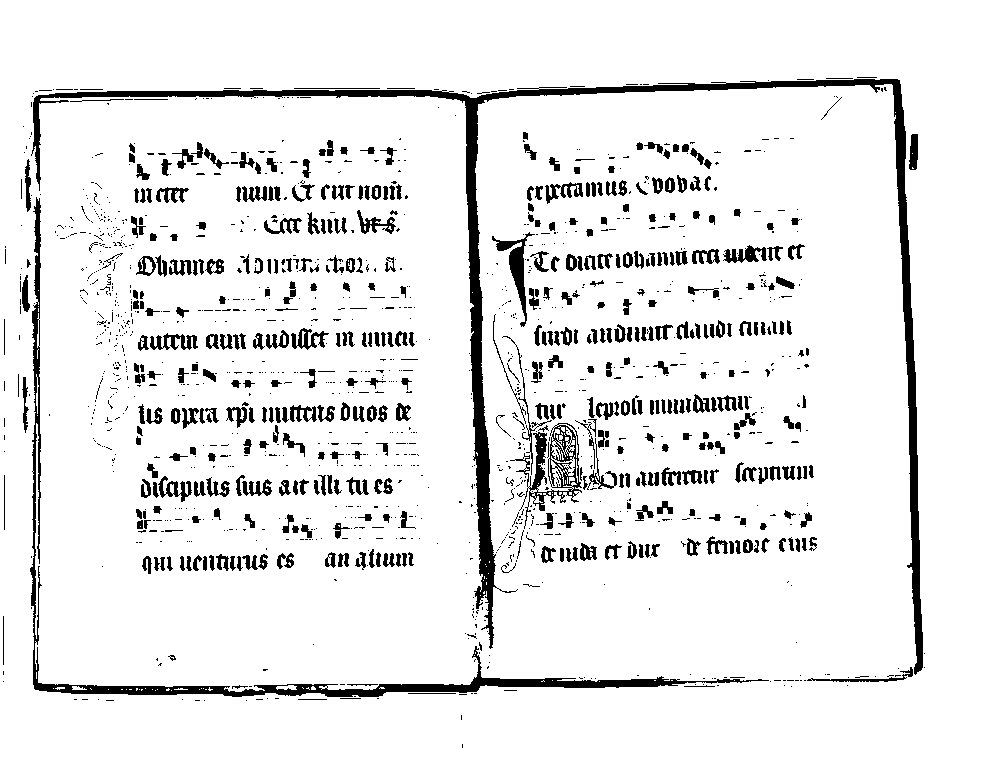 in eter num. Et erit nom̄.
Ecce
Ohannes
autem cum audisset in uincu
lis opera xp̄i mittens duos de
discipulis suis ait illi tu es
qui uenturus es an alium
expectamus. Evovae.
Te dicite iohanni ceci uident et
surdi audiunt claudi curan
tur leprosi mundantur
On auferetur sceptrum
de iuda et dux de femore eius